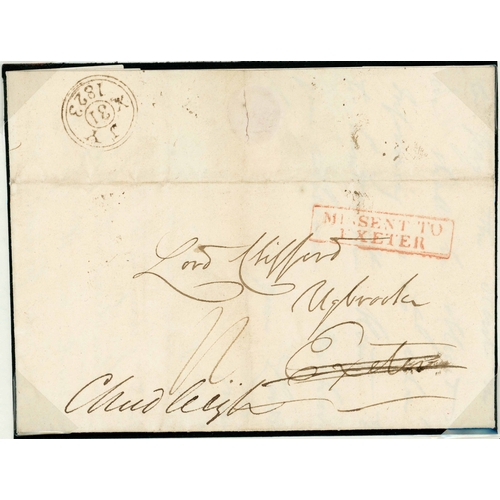 X
JY
31
1823
MISSENT TO
EXETER
Lord Clifford
Ugbrooke
Exeter
Chudleigh